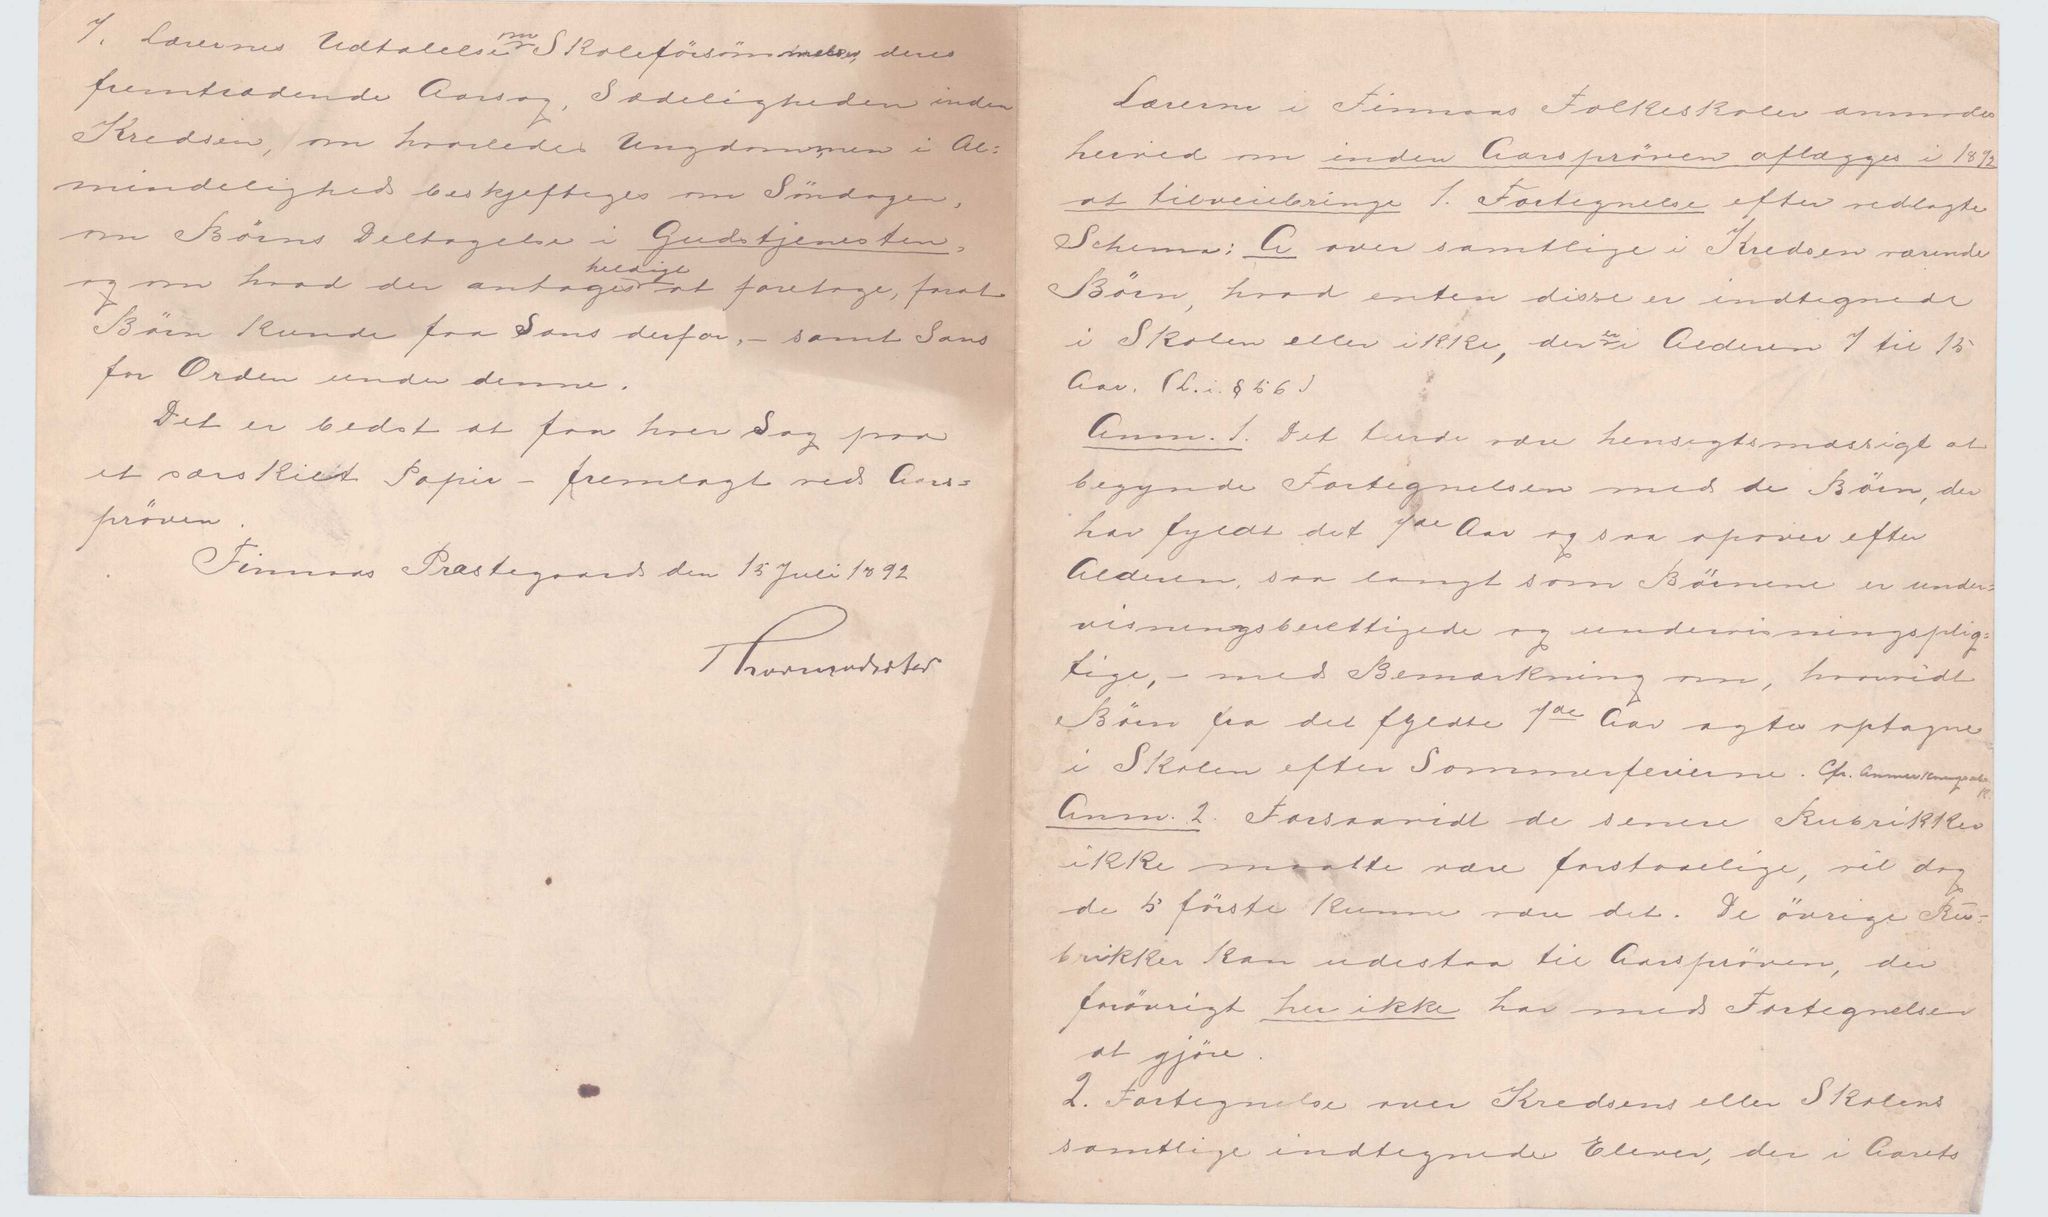 7. Lærernes Udtalelse om Skoleforsömmelser, deres
fremtrædende Aarsag, Sædeligheden inden
Kredsen, om hvorledes Ungdommen i Al=
mindelighed beskjeftiges om Söndagen,
om Börns Deltagelse i Gudstjenesten,
og om hvad der antages heldigt at foretage, forat
Börn kunde faa Sans derfor, – samt Sans
for Orden under denne.
Det er bedst at faa hver Sag paa
et særskilt Papir – fremlagt ved Aars=
pröven.
Finnaas Præstegaard den 15 Juli 1892
Thormodsæter
Lærerne i Finnaas Folkeskoler anmodes
herved om inden Aarspröven aflægges i 1892
at tilveiebringe 1. Fortegnelse efter vedlagte
Schema: A over samtlige i Kredsen værende
Börn, hvad enten disse er indtegnede
i Skolen eller ikke, der er i Alderen 7 til 15
Aar. (L. i. § 56)
Anm. 1. Det turde være hensigtsmæssigt at
begynde Fortegnelsen med de Börn, der
har fyldt det 7de Aar og saa opover efter
Alderen, saa langt som Börnene er under=
visningsberettigede og undervisningsplig=
tige, – med Bemærkning om, hvorvidt
Börn fra det fyldte 7de Aar agtes optagne
i Skolen efter Sommerferierne. Cfr.
Anm. 2. Forsaavidt de senere Rubrikker
ikke maatte være forstaaelige, vil dog
de 5 förste kunne være det. De övrige Ru=
brikker kan udestaa til Aarspröven, der
forövrigt her ikke har med Fortegnelsen
at gjöre.
2. Fortegnelse over Kredsens eller Skolens
samtlige indtegnede Elever, der i Aarets